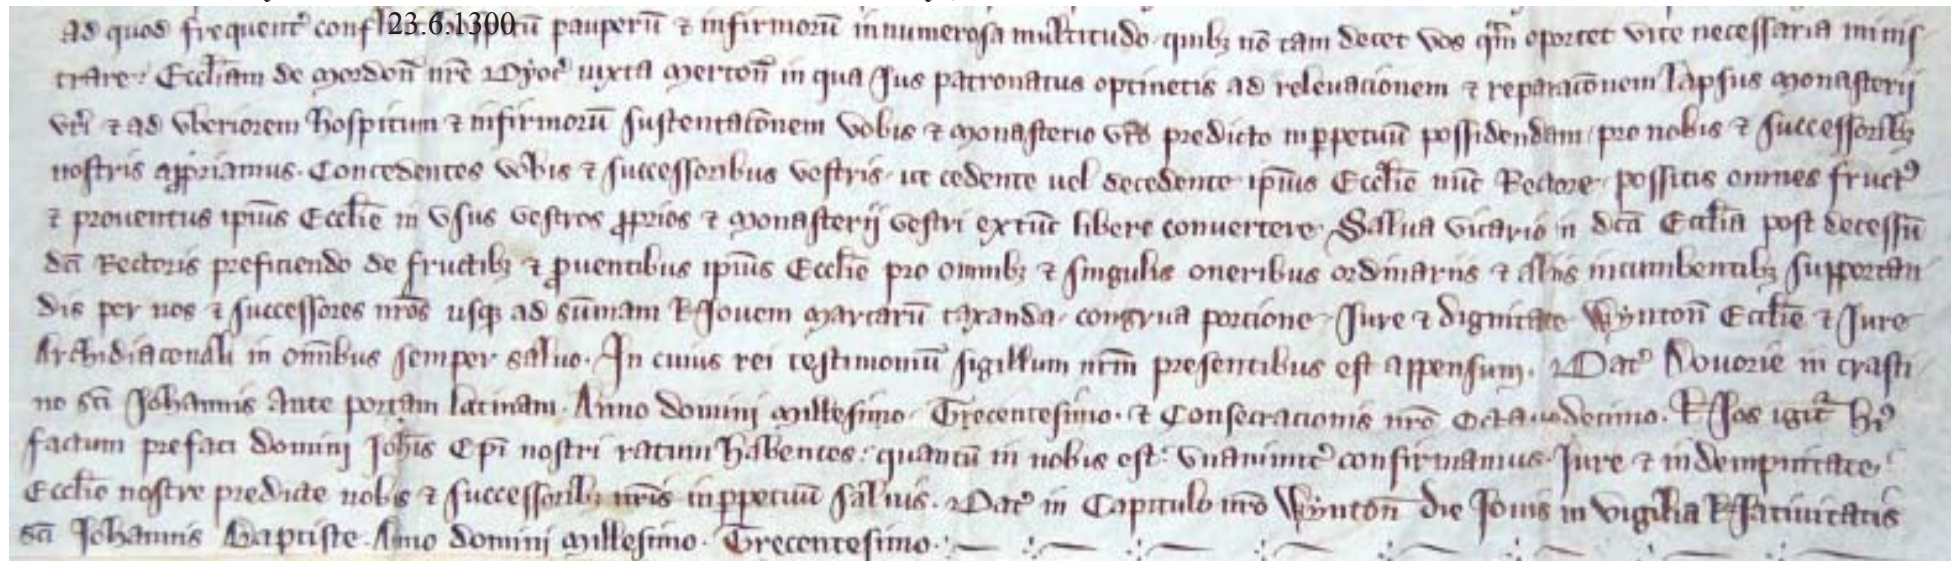 23.6.1300
ad quod frequent᾿ confl pauperū ⁊ infirmorū innumerosa multitudo quibȝ nō tam decet vos qm̄ oportet vite necessaria minis
trare. Eccl̄iam de Mordon̄ nr̄e Dyoc᾿ iuxta Merton̄ in qua Jus patronatus optinetis ad releuacionem ⁊ reparacōnem lapsus Monasterij
vr̄i ⁊ ad vberiorem hospitum ⁊ infirmorū sustentacōnem vobis ⁊ Monasterio vr̄o predicto inꝑpetuū possidendam pro nobis ⁊ successoribȝ
nostris aꝓpriamus. Concedentes vobis ⁊ successoribus vestris ut cedente uel decedente ip̄ius Eccl̄ie nūc Rectore possitis omnes fruct᾿
⁊ prouentus ip̄ius Eccl̄ie in vsus vestros ꝓprios ⁊ Monasterij vestri extūc libere conuertere. Salua vicario in dc̄a Eccl̄ia post decessū
dc̄i Rectoris preficiendo de fructibȝ ⁊ ꝓuentibus ip̄ius Eccl̄ie pro omnibȝ ⁊ singulis oneribus ordinariis ⁊ aliis incumbentibȝ supportan
dis per nos ⁊ successores nr̄os usqȝ ad sūmam Nouem Marcarū taxanda congrua porcione Jure ⁊ dignitate Wynton̄ Eccl̄ie ⁊ Jure
Archidiaconali in om̄ibus semper saluo. In cuius rei testimoniū sigillum nr̄m presentibus est appensum. Dat᾿ in crasti
no sc̄i Johannis ante portam latinam. Anno domini Millesimo Trecentesimo. Et Consecracionis nr̄e Octauodecimo. Nos igit᾿ h᾿
factum prefati domini Joh̄is Ep̄i nostri ratum habentes: quantū in nobis est: vnanimit᾿ confirmamus. Jure ⁊ indempnitate
Eccl̄ie nostre predicte nobis ⁊ successoribȝ nr̄is inꝑpetuū saluis. Dat᾿ in Capitulo nr̄o Wynton̄ die Jouis in vigilia Natiuitatis
sc̄i Johannis Baptiste. Anno domini Millesimo. Trecentesimo.